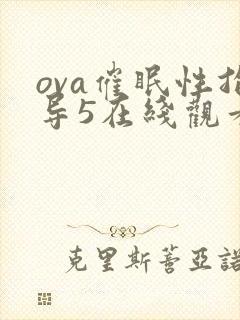 ova催眠性指
导5在线觀看
克里斯蒂亞諾